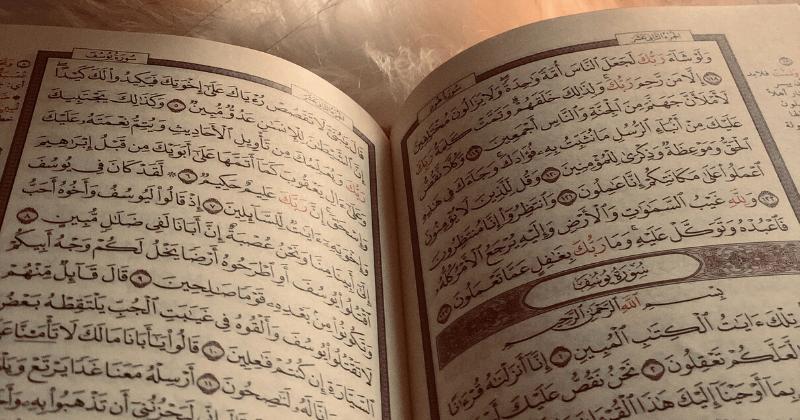 الجزء الثاني عشر
سورة هود
وَلَوْ شَآءَ رَبُّكَ لَجَعَلَ ٱلنَّاسَ أُمَّةً وَٰحِدَةً وَلَا يَزَالُونَ مُخْتَلِفِينَ
١١٨ إِلَّا مَن رَّحِمَ رَبُّكَ وَلِذَٰلِكَ خَلَقَهُمْ وَتَمَّتْ كَلِمَةُ رَبِّكَ
لَأَمْلَأَنَّ جَهَنَّمَ مِنَ ٱلْجِنَّةِ وَٱلنَّاسِ أَجْمَعِينَ ١١٩ وَكُلًّا نَّقُصُّ
عَلَيْكَ مِنْ أَنۢبَآءِ ٱلرُّسُلِ مَا نُثَبِّتُ بِهِۦ فُؤَادَكَ وَجَآءَكَ فِي هَٰذِهِ
ٱلْحَقُّ وَمَوْعِظَةٌ وَذِكْرَىٰ لِلْمُؤْمِنِينَ ١٢٠ وَقُل لِّلَّذِينَ لَا يُؤْمِنُونَ
ٱعْمَلُوا۟ عَلَىٰ مَكَانَتِكُمْ إِنَّا عَٰمِلُونَ ١٢١ وَٱنتَظِرُوٓا۟ إِنَّا مُنتَظِرُونَ
١٢٢ وَلِلَّهِ غَيْبُ ٱلسَّمَٰوَٰتِ وَٱلْأَرْضِ وَإِلَيْهِ يُرْجَعُ ٱلْأَمْرُ كُلُّهُۥ
فَٱعْبُدْهُ وَتَوَكَّلْ عَلَيْهِ وَمَا رَبُّكَ بِغَٰفِلٍ عَمَّا تَعْمَلُونَ ١٢٣
سُورَةُ يُوسُفَ
بِسْمِ ٱللَّهِ ٱلرَّحْمَٰنِ ٱلرَّحِيمِ
تِلْكَ ءَايَٰتُ ٱلْكِتَٰبِ ٱلْمُبِينِ ١ إِنَّآ أَنزَلْنَٰهُ قُرْءَٰنًا
لَّعَلَّكُمْ تَعْقِلُونَ ٢ نَحْنُ نَقُصُّ عَلَيْكَ
بِمَآ أَوْحَيْنَآ إِلَيْكَ هَٰذَا
الجزء الثاني عشر
سورة يوسف
قَالَ يَٰبُنَيَّ لَا تَقْصُصْ رُءْيَاكَ عَلَىٰٓ إِخْوَتِكَ فَيَكِيدُوا۟ لَكَ كَيْدًا
إِنَّ ٱلشَّيْطَٰنَ لِلْإِنسَٰنِ عَدُوٌّ مُّبِينٌ ٥ وَكَذَٰلِكَ يَجْتَبِيكَ
رَبُّكَ وَيُعَلِّمُكَ مِن تَأْوِيلِ ٱلْأَحَادِيثِ وَيُتِمُّ نِعْمَتَهُۥ عَلَيْكَ
وَعَلَىٰٓ ءَالِ يَعْقُوبَ كَمَآ أَتَمَّهَا عَلَىٰٓ أَبَوَيْكَ مِن قَبْلُ إِبْرَٰهِيمَ
وَإِسْحَٰقَ إِنَّ رَبَّكَ عَلِيمٌ حَكِيمٌ ٦ ۞ لَّقَدْ كَانَ فِي يُوسُفَ
وَإِخْوَتِهِۦٓ ءَايَٰتٌ لِّلسَّآئِلِينَ ٧ إِذْ قَالُوا۟ لَيُوسُفُ وَأَخُوهُ أَحَبُّ
إِلَىٰٓ أَبِينَا مِنَّا وَنَحْنُ عُصْبَةٌ إِنَّ أَبَانَا لَفِي ضَلَٰلٍ مُّبِينٍ ٨
ٱقْتُلُوا۟ يُوسُفَ أَوِ ٱطْرَحُوهُ أَرْضًا يَخْلُ لَكُمْ وَجْهُ أَبِيكُمْ
وَتَكُونُوا۟ مِنۢ بَعْدِهِۦ قَوْمًا صَٰلِحِينَ ٩ قَالَ قَآئِلٌ مِّنْهُمْ
لَا تَقْتُلُوا۟ يُوسُفَ وَأَلْقُوهُ فِي غَيَٰبَتِ ٱلْجُبِّ يَلْتَقِطْهُ بَعْضُ
ٱلسَّيَّارَةِ إِن كُنتُمْ فَٰعِلِينَ ١٠ قَالُوا۟ يَٰٓأَبَانَا مَا لَكَ لَا تَأْمَ۫نَّا عَلَىٰ
وَإِنَّا لَهُۥ لَنَٰصِحُونَ ١١ أَرْسِلْهُ مَعَنَا غَدًا يَرْتَعْ
لَيَحْزُنُنِيٓ أَن تَذْهَبُوا۟ بِهِۦ